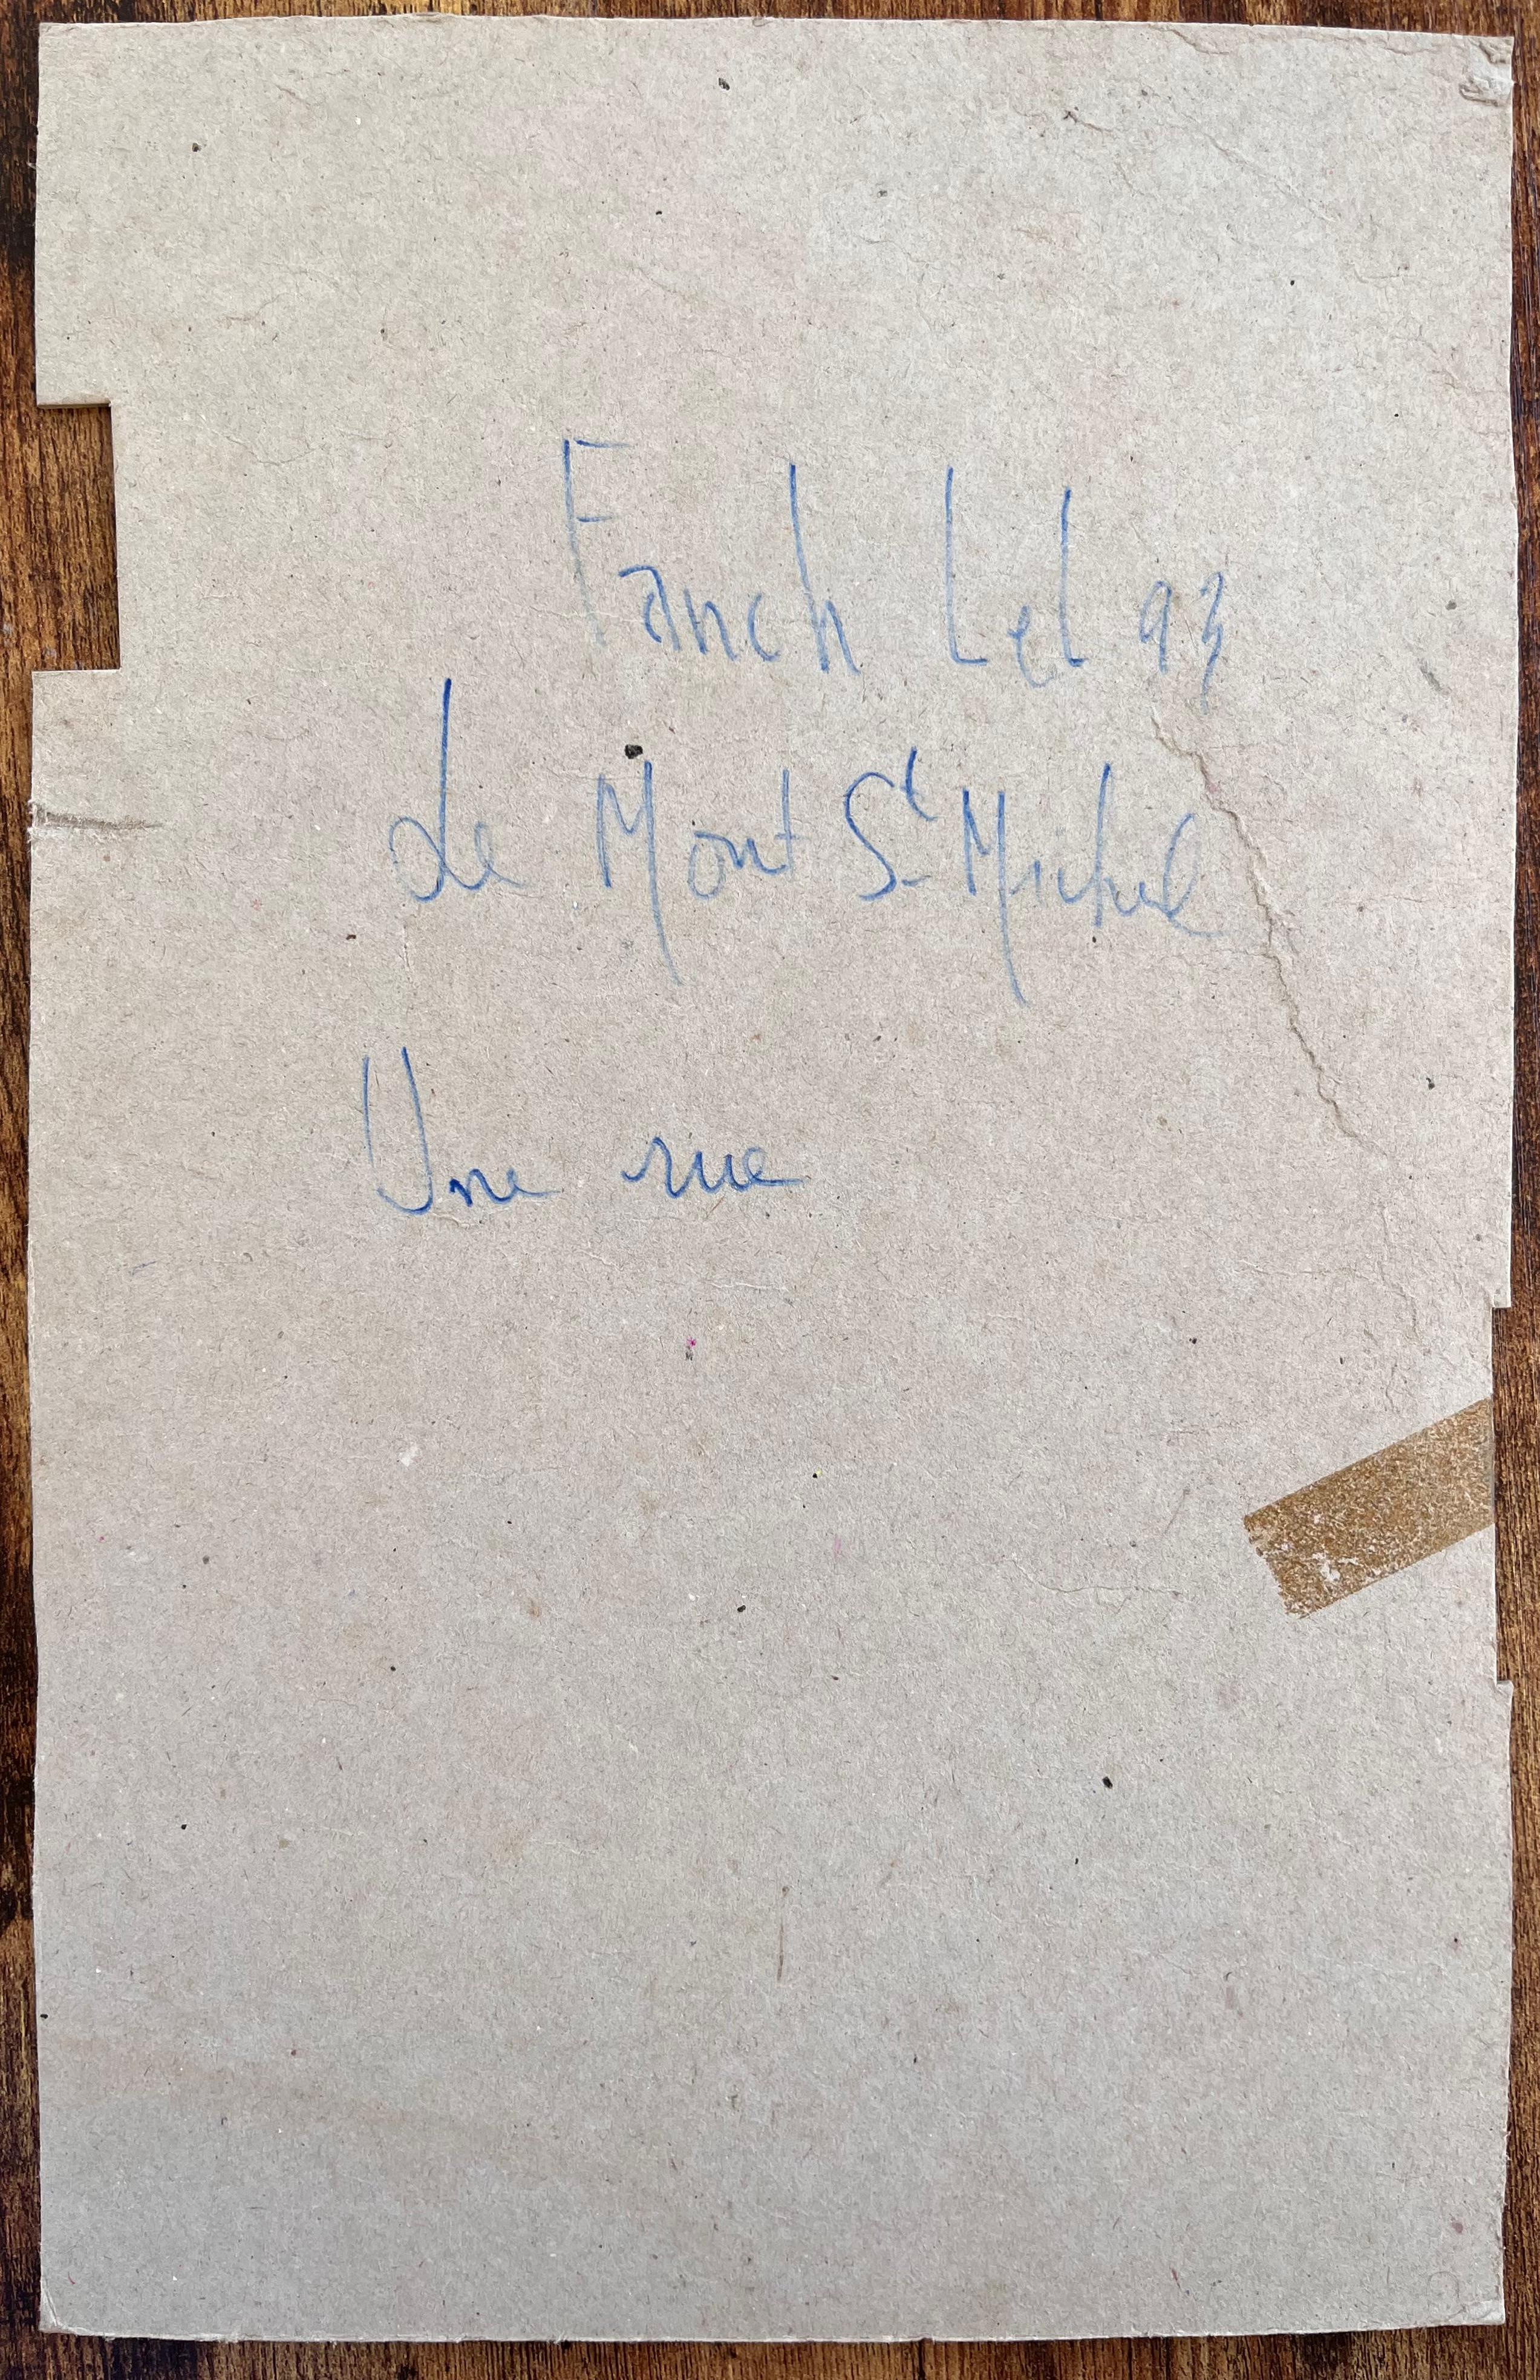 Fanch Lel 93
Le Mont St Michel
Une rue